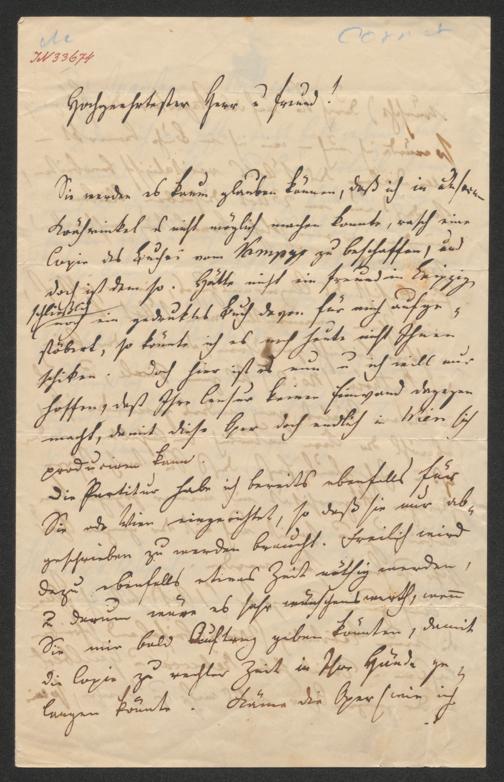 Cornet
IN 33674
Hochgeehrtester Herr u Freund!
Sie werden es kaum glauben können, daß ich in unserm
Krähwinkel es nicht möglich machen konnte, rasch eine
Copie des Buches vom Vampyr zu beschaffen, und
doch ist dem so. Hätte nicht ein Freund in Leipzig
schließlich
noch ein gedrucktes Buch davon für mich aufge-
stöbert, so könnte ich es noch heute nicht Ihnen
schicken. Doch hier ist es nun u ich will nur
hoffen, daß Ihre Censur keinen Einwand dagegen
macht, damit diese Oper doch endlich in Wien sich
produciren kann
Die Partitur habe ich bereits ebenfalls für
Sie oder Wien eingerichtet, so daß sie nur ab-
geschrieben zu werden braucht. Freilich wird
dazu ebenfalls etwas Zeit nöthig werden,
darum wäre es sehr wünschenswerth, wenn
Sie mir bald Auftrag geben könnten, damit
die Copie zu rechter Zeit in Ihre Hände ge-
langen könnte. Käme die Oper (wie ich